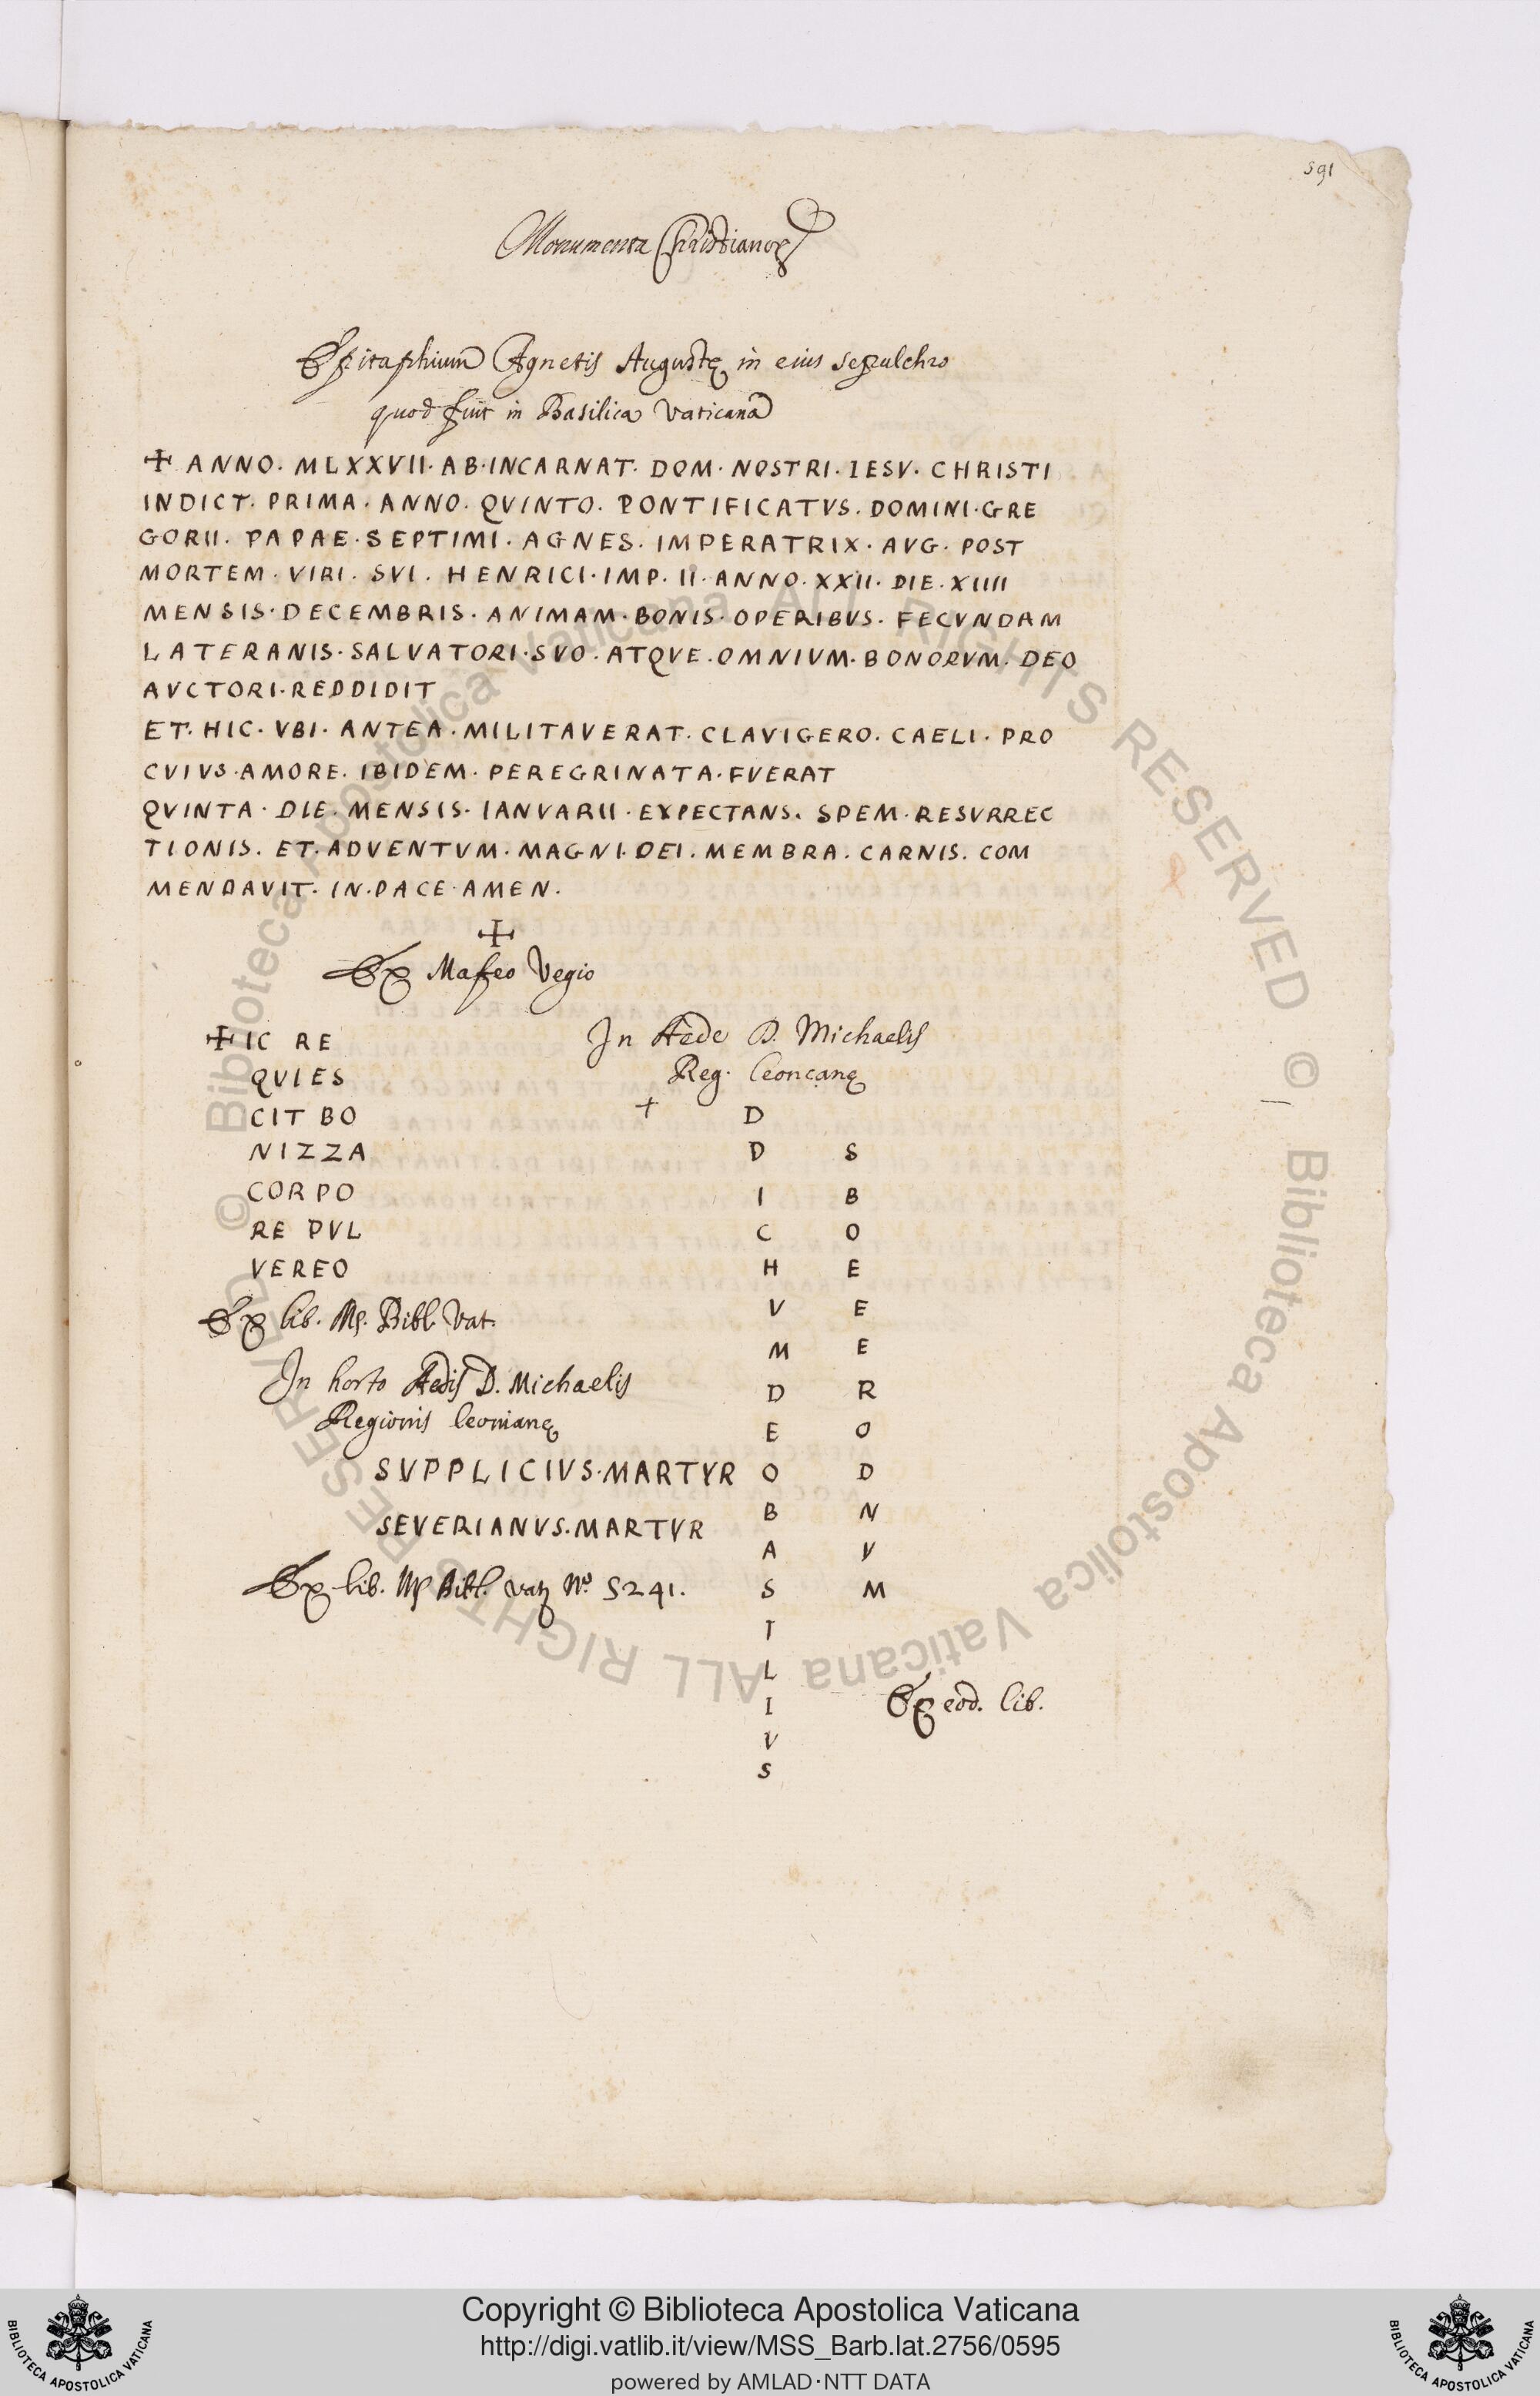 591
Monumenta Christianoꝝ
Epitaphium Agnetis Augustę in eius sepulchro
quod fuit in Basilica Vaticana
✠ ANNO. MLXXVII. AB. INCARNAT. DOM. NOSTRI. IESV. CHRISTI
INDICT. PRIMA. ANNO. QVINTO. PONTIFICATVS. DOMINI. GRE
GORII. PAPAE. SEPTIMI. AGNES. IMPERATRIX. AVG. POST
MORTEM. VIRI. SVI. HENRICI. IMP. II. ANNO. XXII. DIE. XIIII
MENSIS. DECEMBRIS. ANIMAM. BONIS. OPERIBVS. FECVNDAM
LATERANIS. SALVATORI. SVO. ATQVE. OMNIVM. BONORVM. DEO
AVCTORI. REDDIDIT
ET. HIC. VBI. ANTEA. MILITAVERAT. CLAVIGERO. CAELI. PRO
CVIVS. AMORE. IBIDEM. PEREGRINATA. FVERAT
QVINTA. DIE. MENSIS. IANVARII. EXPECTANS. SPEM. RESVRREC
TIONIS. ET. ADVENTVM. MAGNI. DEI. MEMBRA. CARNIS. COM
MENDAVIT. IN. PACE. AMEN.
✠
Ex Mafeo Vegio
✠IC RE
QVIES
CIT BO
NIZZA
CORPO
RE PVL
VEREO
Ex lib. Ms. Bibl. Vat.
In horto Aedis D. Michaelis
Regionis leonianę
SVPPLICIVS. MARTYR
SEVERIANVS. MARTVR
Ex lib. Ms Bibl. Vat. No. 5241.
In Aede D. Michaelis
Reg. leoncanę
+ D
D S
I B
C O
H E
V E
M E
D R
E O
O D
B N
A V
S M
T
L
I
V
S
Ex eod. lib.
© Biblioteca Apostolica Vaticana ALL RIGHTS RESERVED © Biblioteca Apostolica Vaticana ALL RIGHTS RESERVED
BIBLIOTECA APOSTOLICA VATICANA
Copyright © Biblioteca Apostolica Vaticana
http://digi.vatlib.it/view/MSS_Barb.lat.2756/0595
powered by AMLAD·NTT DATA
BIBLIOTECA APOSTOLICA VATICANA